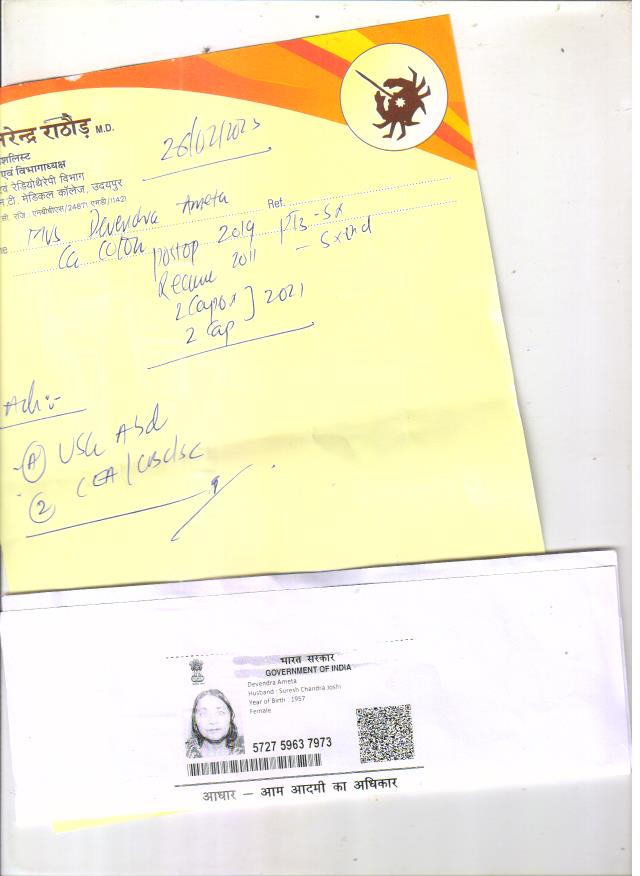 रेन्द्र राठौड़ M.D.
एवं विभागाध्यक्ष
एवं रेडियोथैरेपी विभाग
एन.टी. मेडिकल कॉलेज, उदयपुर
सी. रजि. एमबीबीएस/24871 एमडी/11421
26/02/2023
Mrs Devendra Ameta Ref.
Ca Colon postop 2019
2 Capox ] 2021
2 Cap
Adv:-
USG Abd
2 CEA / CBC/SC
भारत सरकार
GOVERNMENT OF INDIA
Devendra Ameta
Husband : Suresh Chandra Joshi
Year of Birth : 1957
Female
5727 5963 7973
आधार – आम आदमी का अधिकार